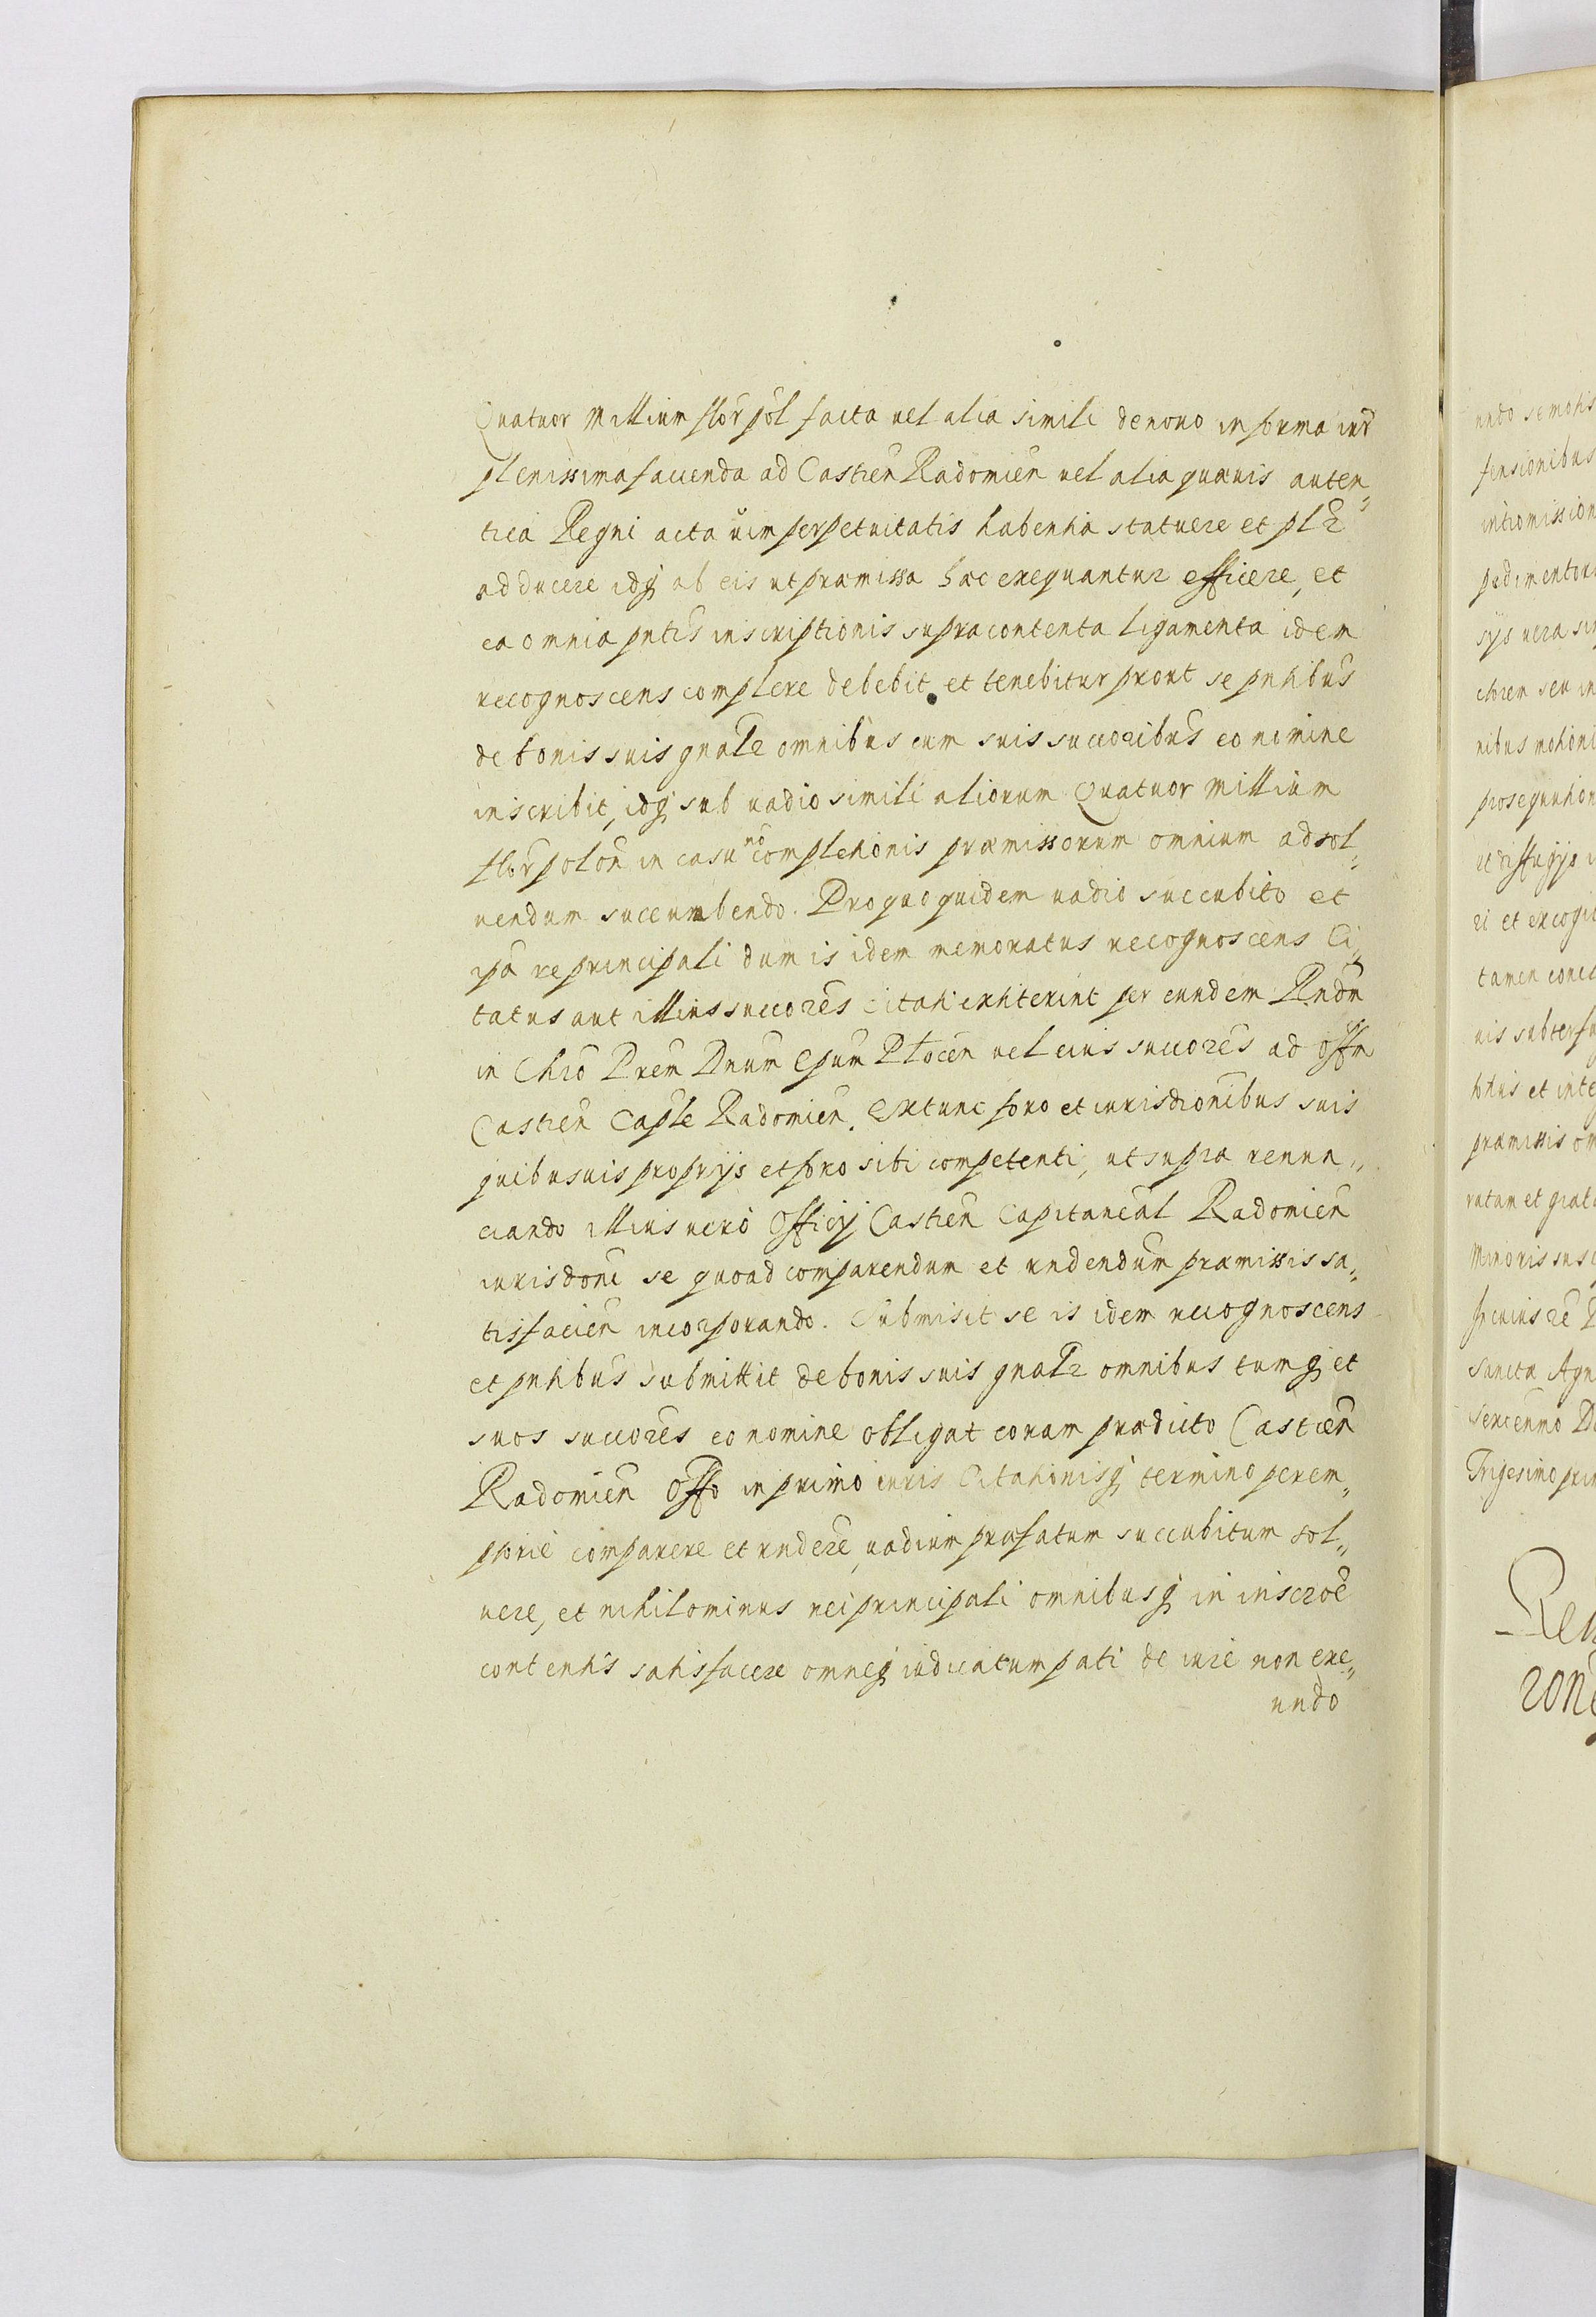 Quatuor Millium flor pol facta uel alia simili denouo in forma iur
plenissima faciendo ad Castren Radomien uel alia quæuis auten„
tica Regni acta uim perpetuitatis habentia statuere et plr
adducere idq ab eis ut præmissa hæc exequantur efficere, et
ea omnia pntis inscriptionis supracontenta ligamenta idem
recognoscens complere debebit et tenebitur prout se pntibus
de bonis suis gnalr omnibus cum suis succoribus eo nomine
inscribit, idq sub uadio simili aliorum Quatuor Millium
flor polon in casu no completionis præmissorum omnium ad sol„
uendum succumbendo. Pro quo quidem uadio succubito et
ipa re principali dum is idem memoratus recognoscens Ci„
tatus aut illius succores citati extiterint per eundem Rndm
in Chro Prem Dnum Epum Plocen uel eius succores ad Offm
Castren Caple Radomien. Extunc foro et iurisdionibus suis
quibusuis proprijs et foro sibi competenti, ut supra renun„
ciando illius uero Officij Castren Capitaneal Radomien
iurisdoni se quoad comparendum et rndendum præmissis sa„
tisfacien incorporando. Submisit se is idem recognoscens
et pntibus submittit de bonis suis gnalr omnibus tumq et
suos succores eo nomine obligat coram prædicto Castren
Radomien Offo in primo iuris Citationisq termino perem„
ptorie comparere et rndere, uadium præfatum succubitum sol„
uere, et nihilominus rei principali omnibusq in inscroe
contentis satisfacere omneq iudicatum pati de iure non exe„
undo
undo semotis
fensionibus
intromission
pedimentor
sys uera sin
nibus motioni
prosequution
et diffugijs
ri et excogit
tamen conced
uis subterfu
et inte
præmissis om
ratam et grat
Minoris sus
In cuius re
Sancta Agn
Trigesimo prim